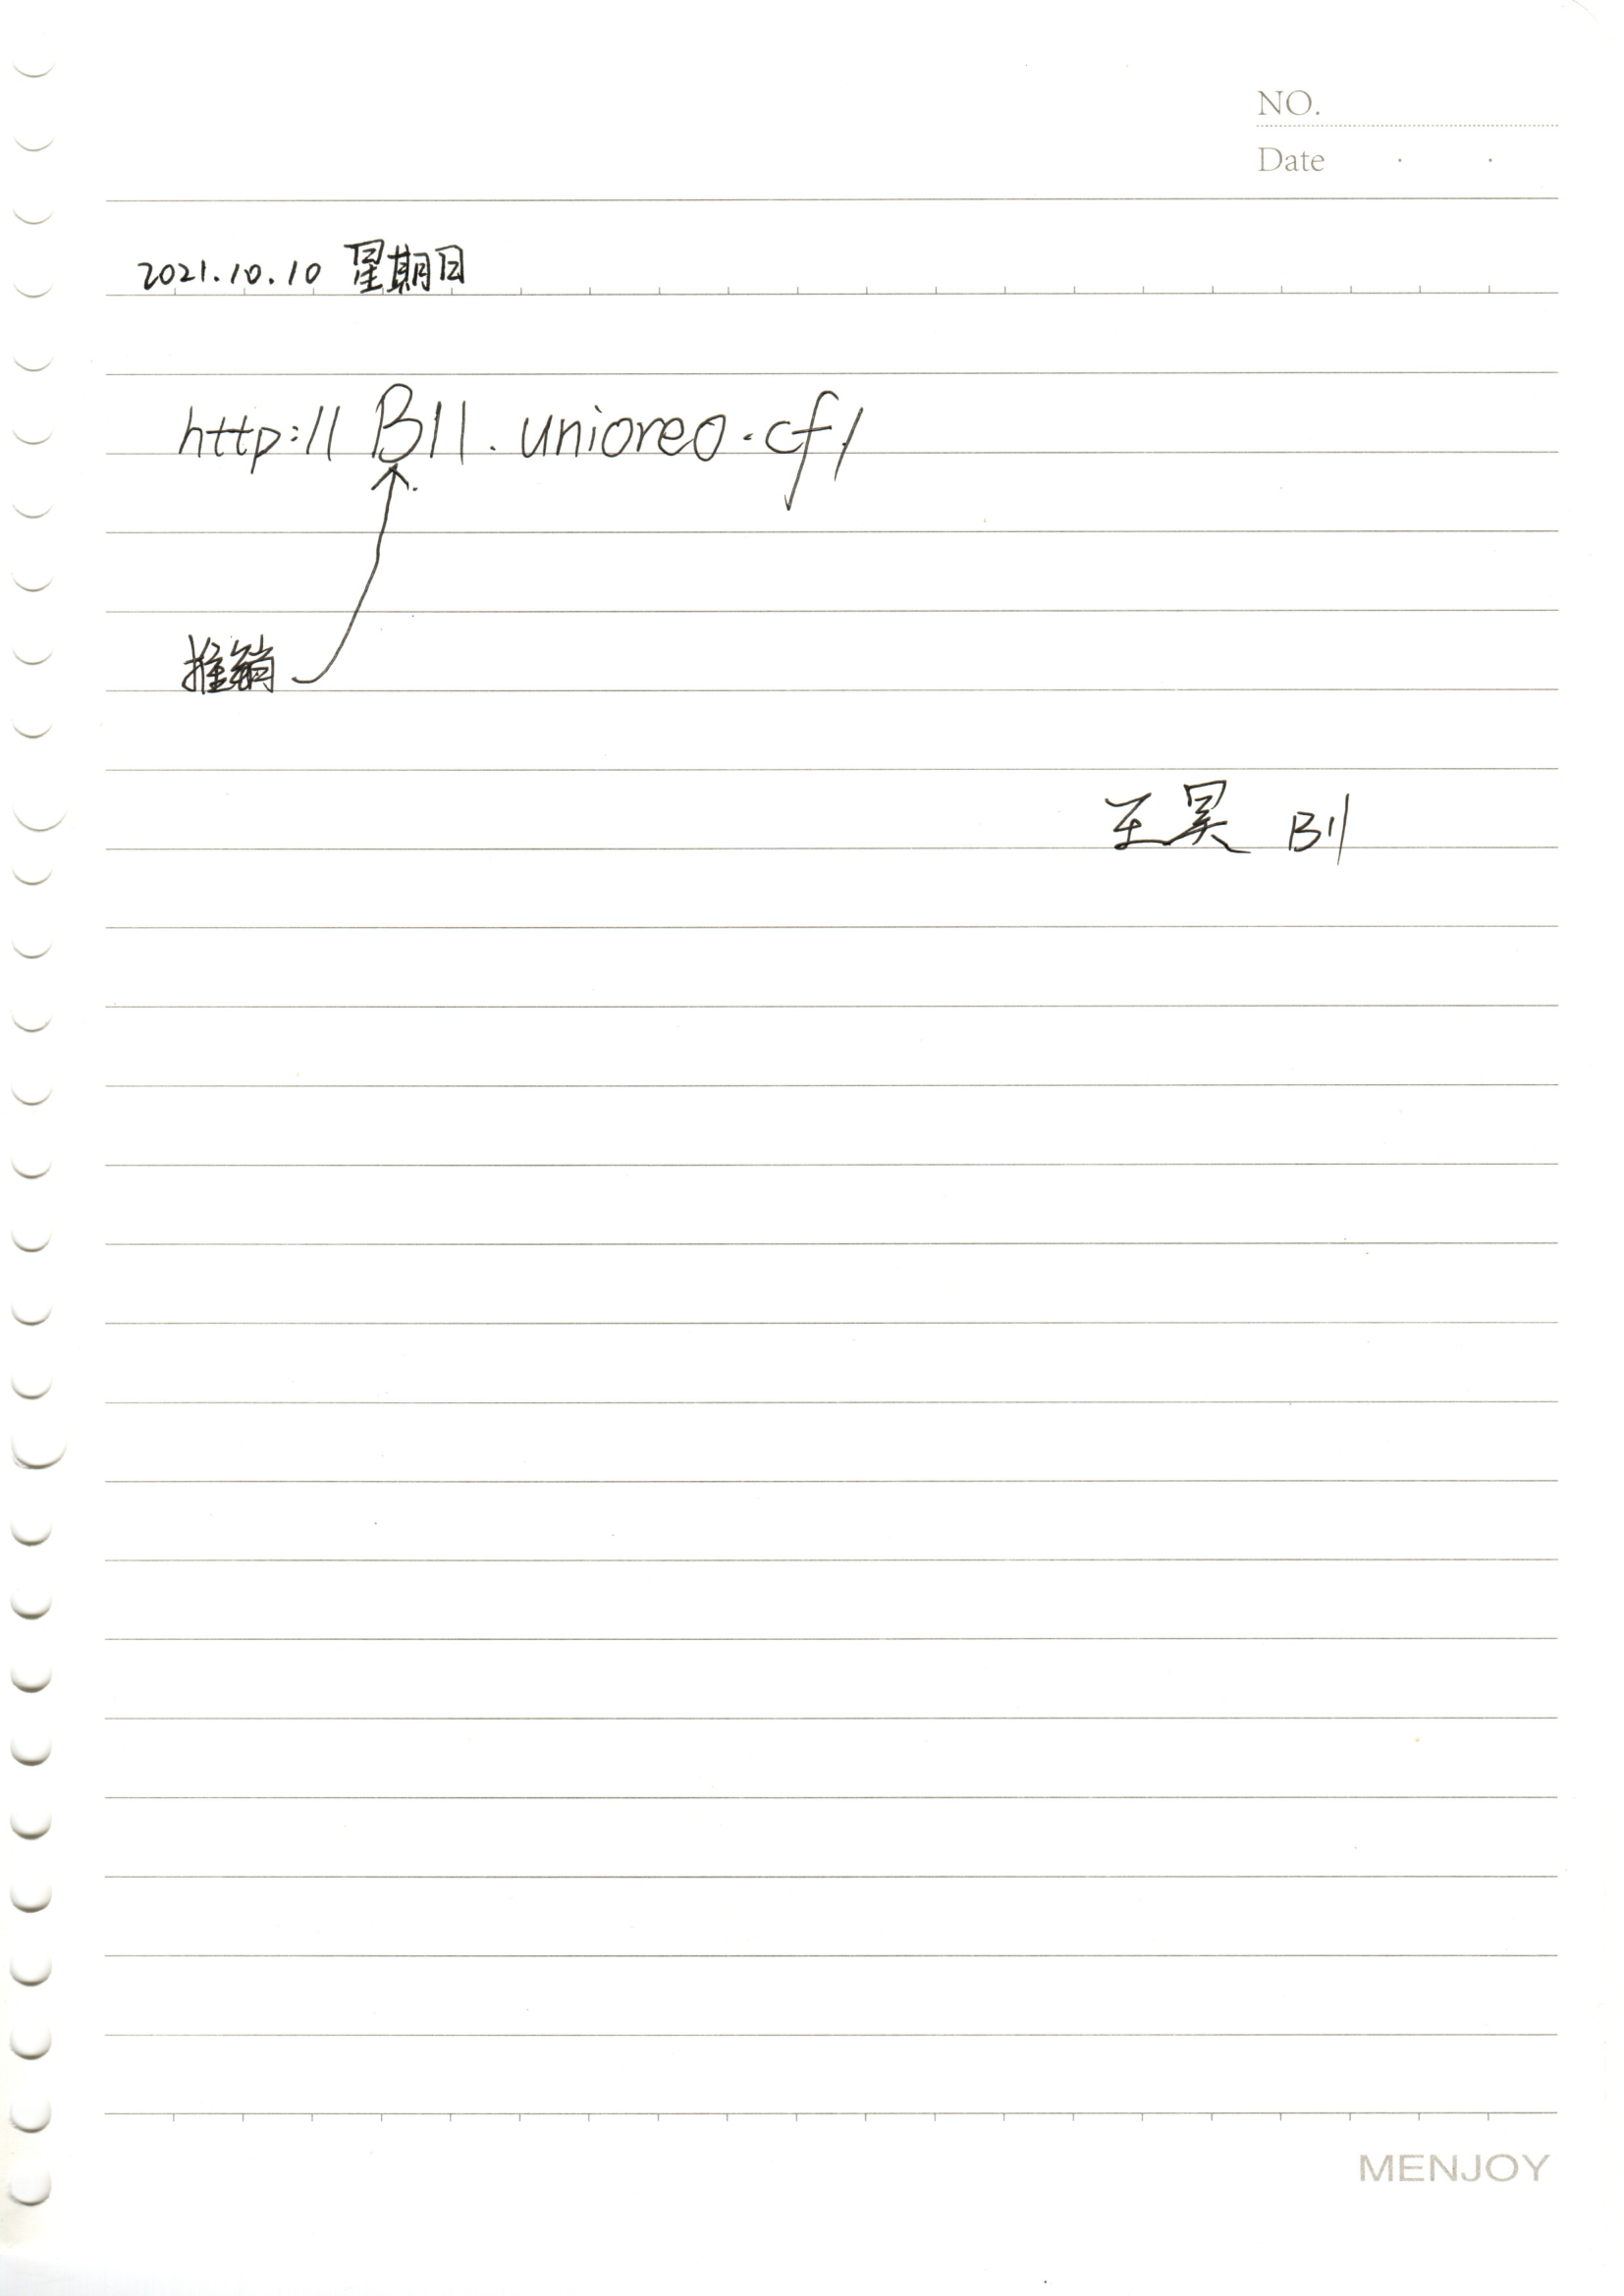 NO.
Date . .
2021.10.10 星期日
http://B11.unioreo.cf/
推销
王昊 B11
MENJOY